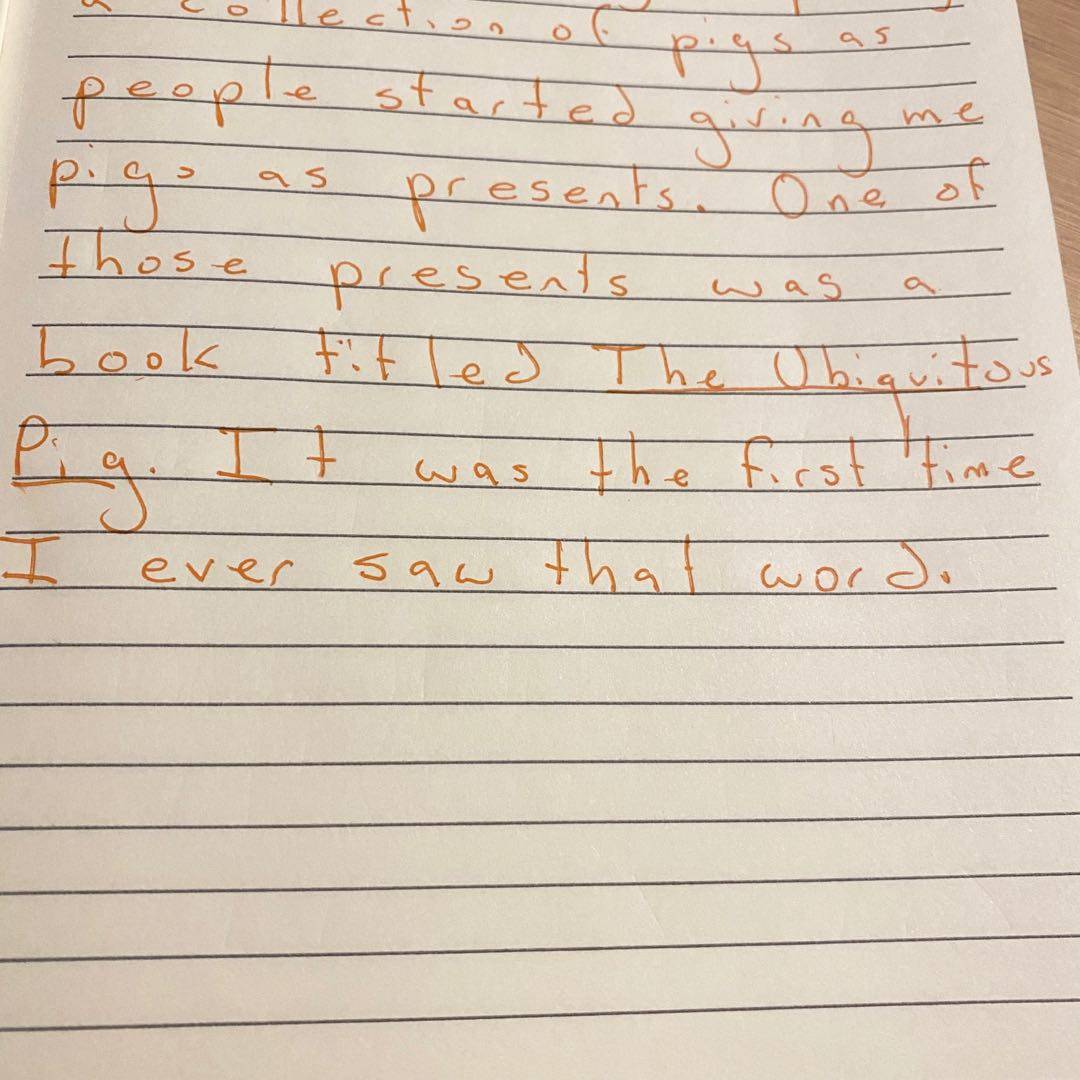 a collection of pigs as
people started giving me
pigs as presents. One of
those presents was a
book titled The Ubiquitous
Pig. It was the first time
I ever saw that word.